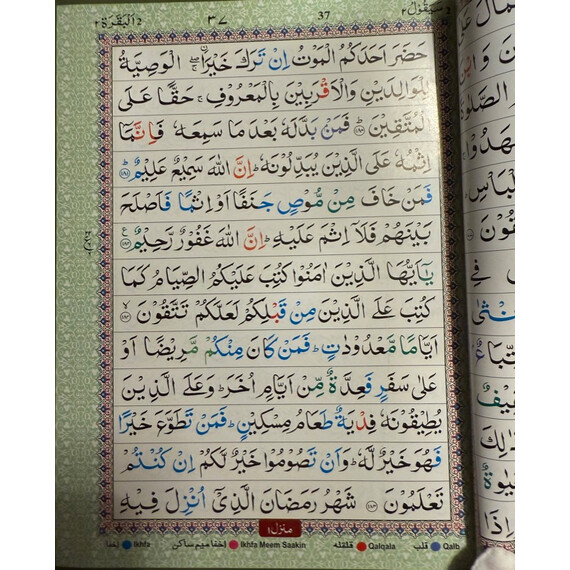 البقرة ٢ ٣٧ 37 سيقول ٢
حَضَرَ اَحَدَكُمُ الْمَوْتُ اِنْ تَرَكَ خَيْرَاۨ ۖۚ الْوَصِيَّةُ
لِلْوَالِدَيْنِ وَالْاَقْرَبِيْنَ بِالْمَعْرُوْفِ ۚ حَقًّا عَلَى
الْمُتَّقِيْنَ ؕ‏﴿۱۸۰﴾ فَمَنْۢ بَدَّلَهٗ بَعْدَ مَا سَمِعَهٗ فَاِنَّمَاۤ
اِثْمُهٗ عَلَى الَّذِيْنَ يُبَدِّلُوْنَهٗ ؕ اِنَّ اللّٰهَ سَمِيْعٌ عَلِيْمٌ ؕ‏﴿۱۸۱﴾
فَمَنْ خَافَ مِنْ مُّوْصٍ جَنَفًا اَوْ اِثْمًا فَاَصْلَحَ
بَيْنَهُمْ فَلَاۤ اِثْمَ عَلَيْهِ ؕ اِنَّ اللّٰهَ غَفُوْرٌ رَّحِيْمٌ ‏﴿۱۸۲﴾
يٰٓاَيُّهَا الَّذِيْنَ اٰمَنُوْا كُتِبَ عَلَيْکُمُ الصِّيَامُ کَمَا
كُتِبَ عَلَى الَّذِيْنَ مِنْ قَبْلِکُمْ لَعَلَّكُمْ تَتَّقُوْنَ ۙ‏﴿۱۸۳﴾
اَيَّامًا مَّعْدُوْدٰتٍ ؕ فَمَنْ كَانَ مِنْكُمْ مَّرِيْضًا اَوْ
عَلٰى سَفَرٍ فَعِدَّةٌ مِّنْ اَيَّامٍ اُخَرَ ؕ وَعَلَى الَّذِيْنَ
يُطِيْقُوْنَهٗ فِدْيَةٌ طَعَامُ مِسْكِيْنٍ ؕ فَمَنْ تَطَوَّعَ خَيْرًا
فَهُوَ خَيْرٌ لَّهٗ ؕ وَاَنْ تَصُوْمُوْا خَيْرٌ لَّکُمْ اِنْ كُنْتُمْ
تَعْلَمُوْنَ ‏﴿۱۸۴﴾ شَهْرُ رَمَضَانَ الَّذِىْٓ اُنْزِلَ فِيْهِ
منزل ۱
اخفا Ikhfa اخفا ميم ساكن Ikhfa Meem Saakin قلقله Qalqala قلب Qalb